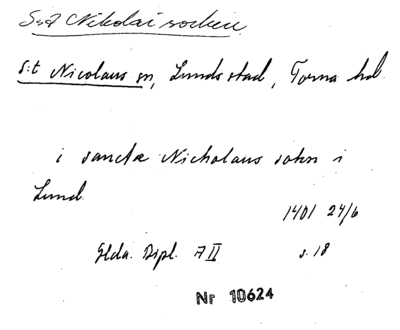 S:t Nikolai socken
S:t Nicolaus sn, Lunds stad, Torna hd.
i sanctæ Nicholaus sokn i
Lund
1401 24/6
Glda. Dipl. A II s. 18
Nr 10624